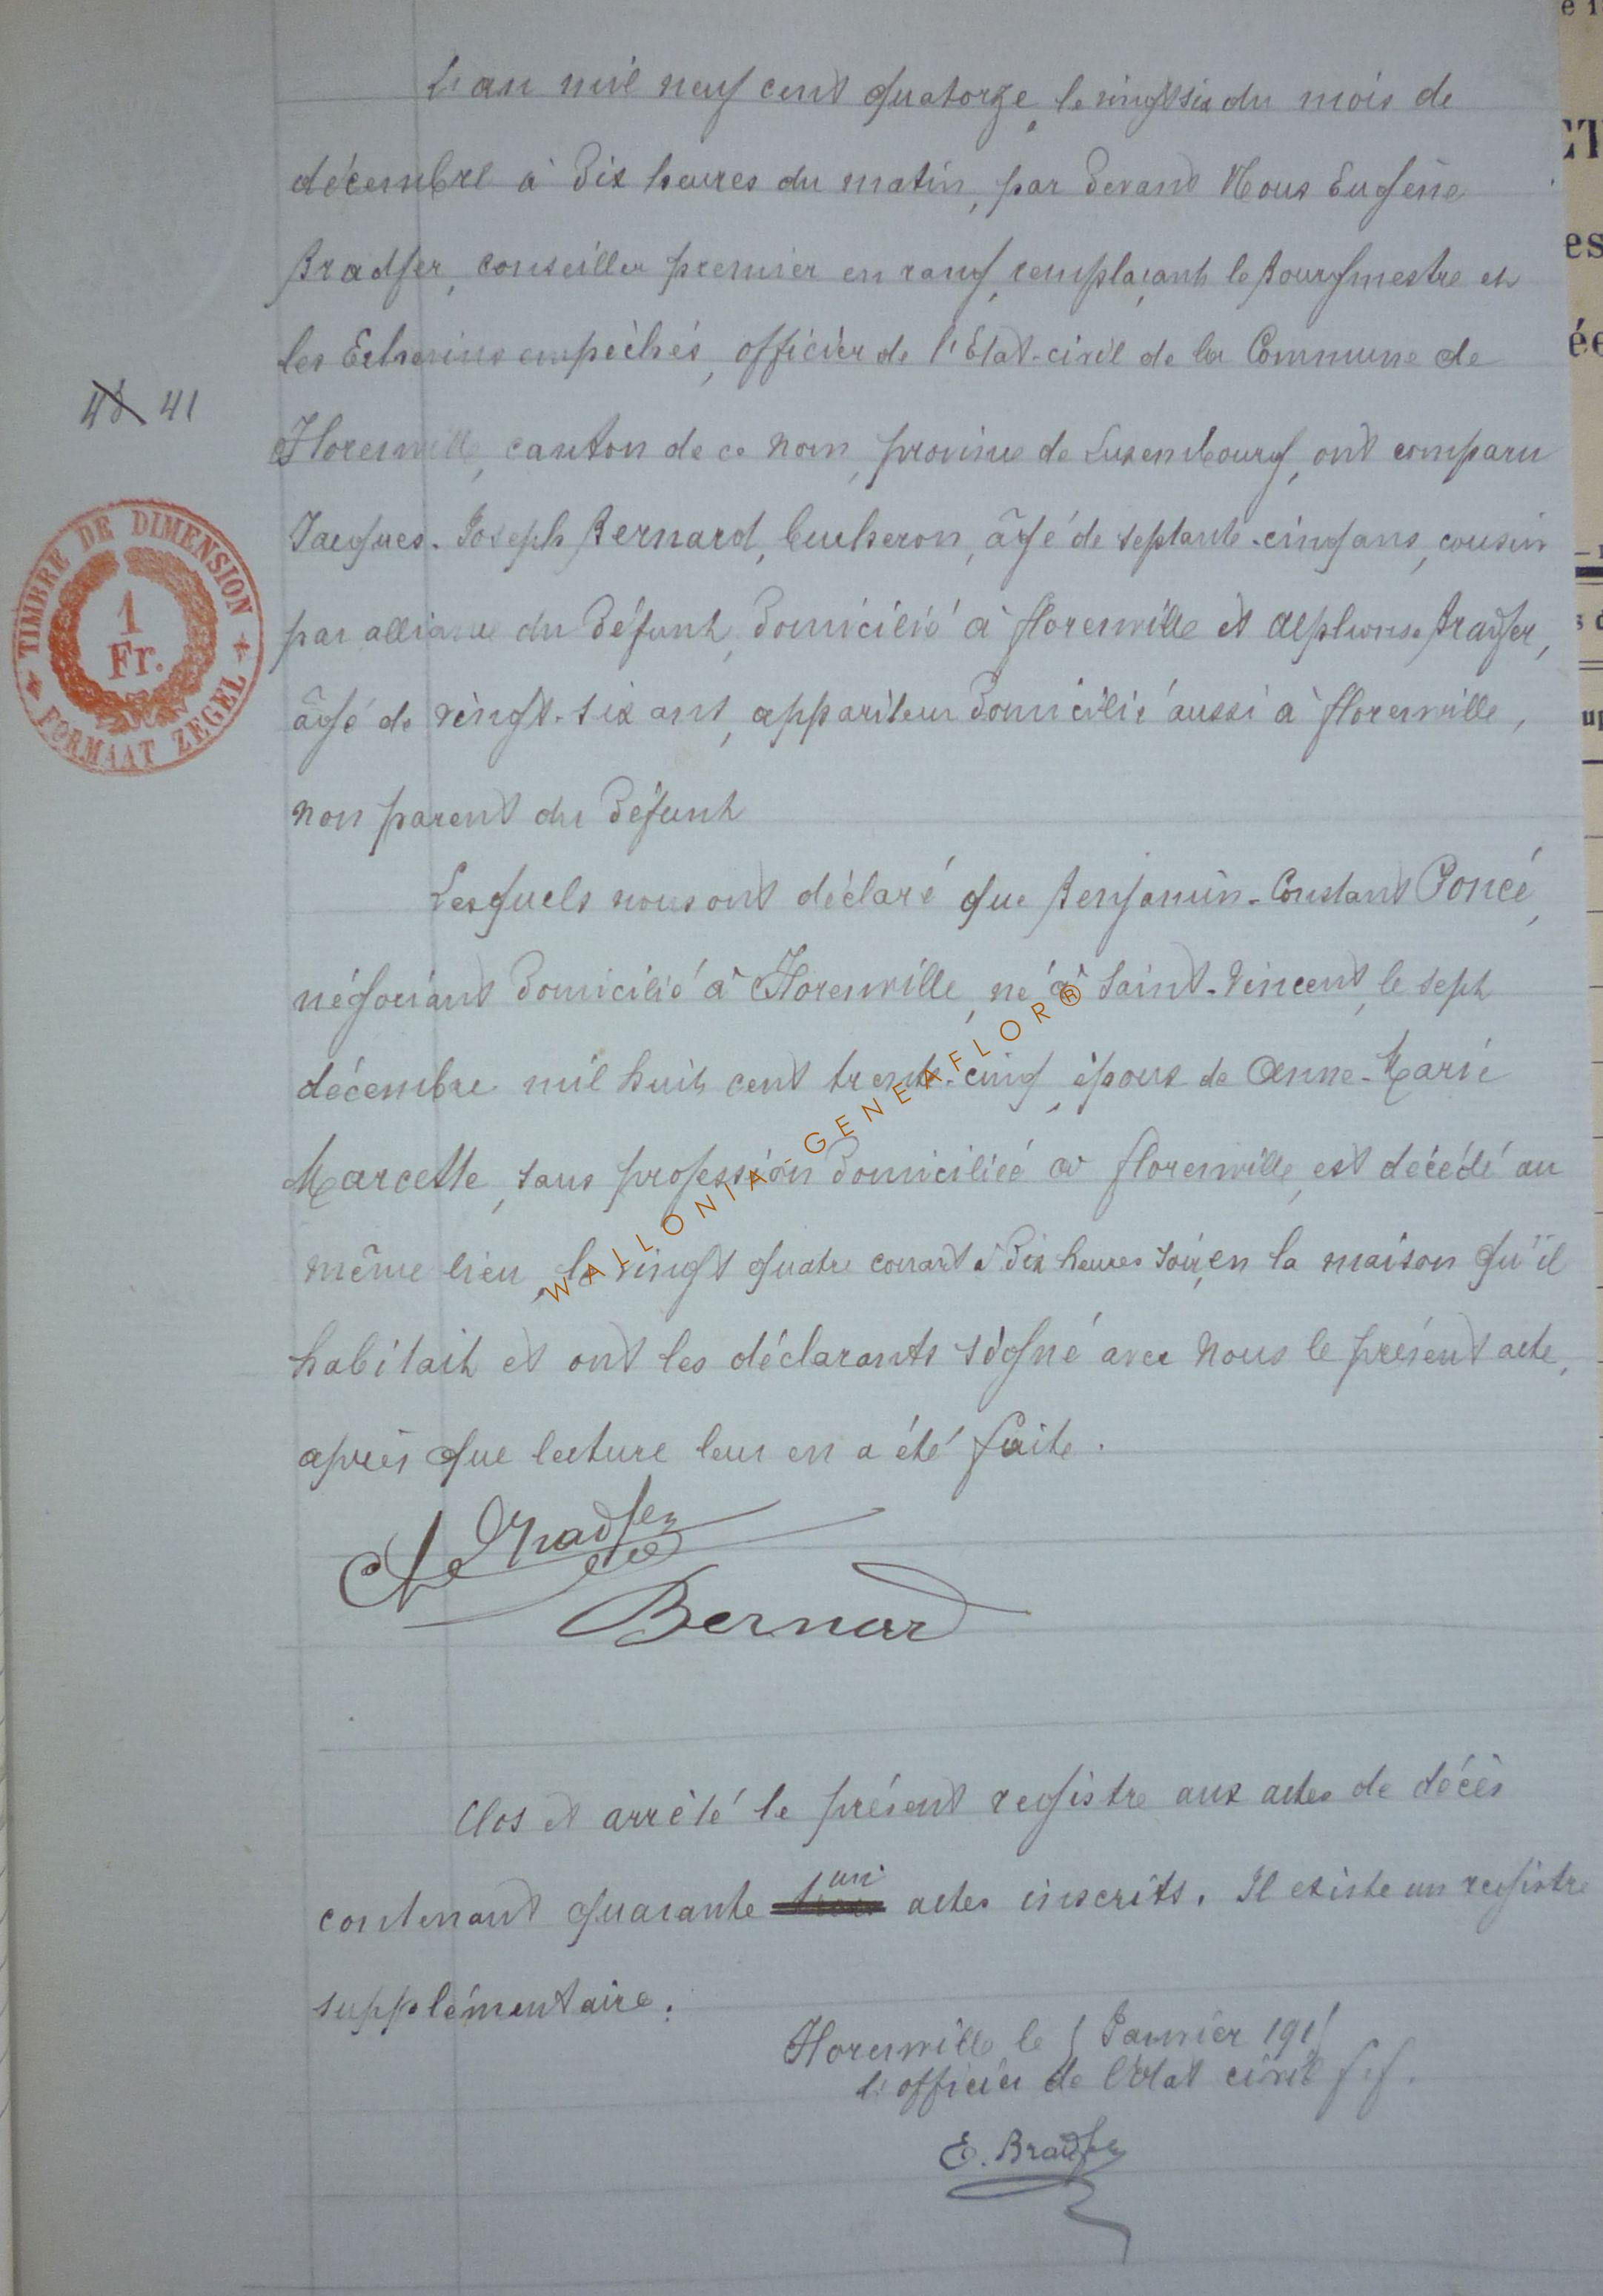 L'an mil neuf cent quatorze, le vingt six du mois de
décembre à dix heures du matin, par devant Nous Eugène
Bradfer, conseiller premier en rang, remplaçant le Bourgmestre et
les Echevins empêchés, officier de l'Etat-civil de la Commune de
41
Florenville, canton de ce nom, province de Luxembourg, ont comparu
Jacques-Joseph Bernard, bucheron, âgé de septante-cinq ans, cousin
TIMBRE DE DIMENSION
1
Fr.
FORMAAT ZEGEL
par alliance du défunt, domicilié à Florenville et Alphonse Bradfer,
âgé de vingt-six ans, appariteur domicilié aussi à Florenville,
non parent du défunt
Lesquels nous ont déclaré que Benjamin-Constant Poncé,
négociant domicilié à Florenville, né à Saint-Vincent, le sept
décembre mil huit cent trente-cinq, époux de Anne-Marie
Marcette, sans profession domiciliée à Florenville, est décédé au
même lieu, le vingt quatre courant à dix heures soir, en la maison qu'il
habitait et ont les déclarants signé avec Nous le présent acte,
après que lecture leur en a été faite.
WALLONIA-GENEAFLOR®
Bradfer
Bernard
Clos et arrêté le présent registre aux actes de décès
contenant quarante un actes inscrits. Il existe un registre
supplémentaire.
Florenville le 5 Janvier 1915
l'officier de l'Etat civil ff.
E. Bradfer
CT
es
ée
up